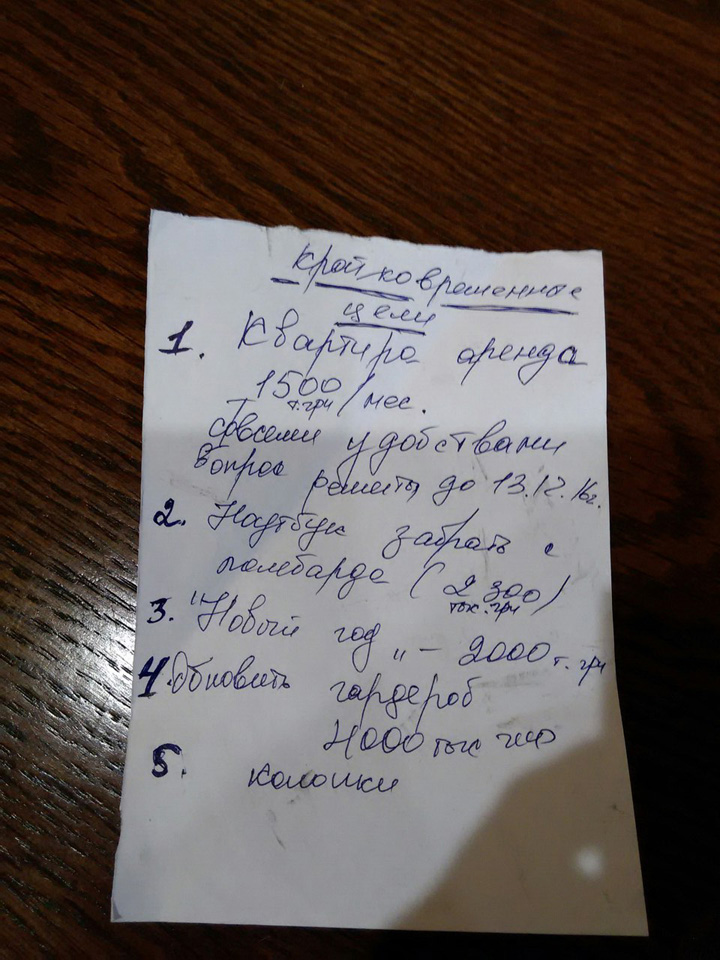 Кратковременные
цели
1. Квартира аренда
1500/мес.
т.грн
со всеми удобствами
Вопрос решить до 13.12.16г.
2. Ноутбук забрать с
ломбарда (2300)
тыс. грн
3. "Новый год" - 2000 т. грн
4. Обновить гардероб
4000 тыс грн
5. колонки